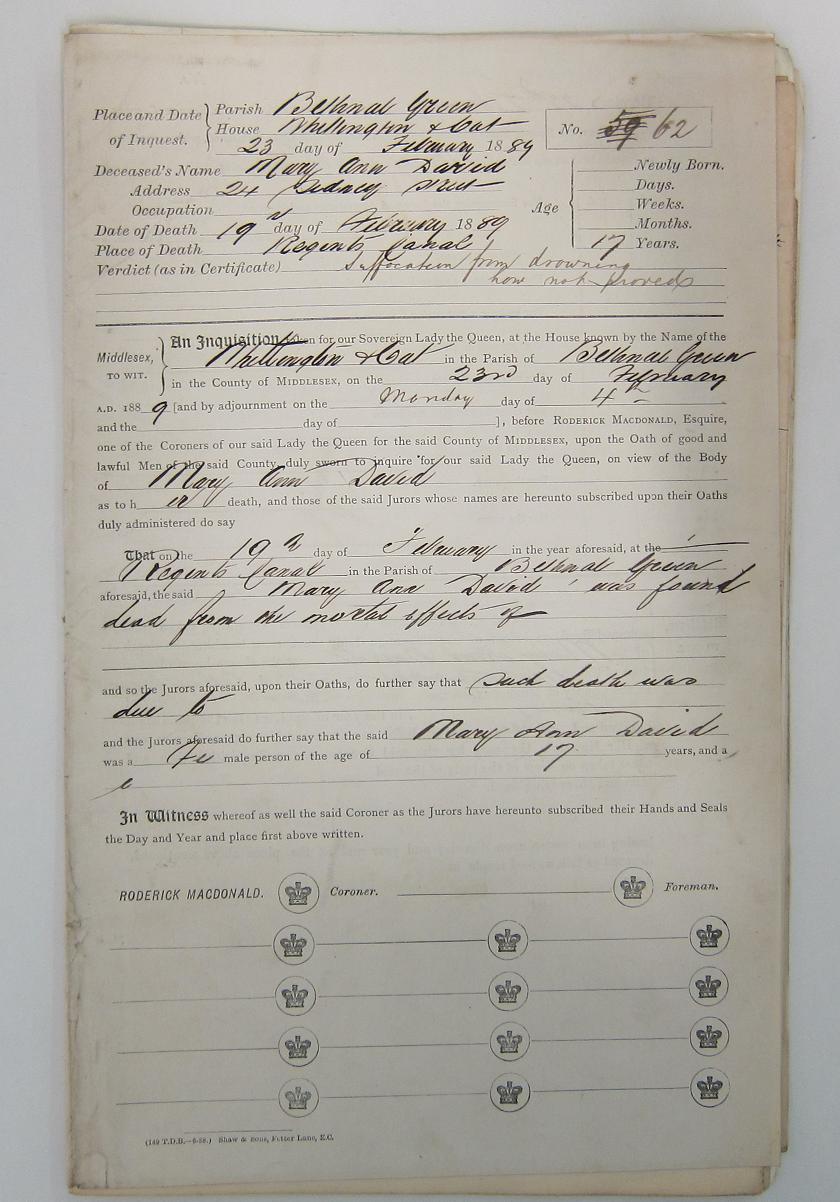 Place and Date of Inquest.
Parish Bethnal Green
House Whittington & Cat
23 day of February 1889
No. 59 62
Deceased's Name Mary Ann David
Address 24 Sidney Street
Occupation
Date of Death 19th day of February 1889
Place of Death Regents Canal
Age
Newly Born.
Days.
Weeks.
Months.
17 Years.
Verdict (as in Certificate) Suffocation from drowning
how not proved
Middlesex, TO WIT.
An Inquisition taken for our Sovereign Lady the Queen, at the House known by the Name of the
Whittington & Cat in the Parish of Bethnal Green
in the County of MIDDLESEX, on the 23rd day of February
A.D. 1889 [and by adjournment on the Monday day of 4
and the day of ], before RODERICK MACDONALD, Esquire,
one of the Coroners of our said Lady the Queen for the said County of MIDDLESEX, upon the Oath of good and
lawful Men of the said County, duly sworn to inquire for our said Lady the Queen, on view of the Body
of Mary Ann David
as to her death, and those of the said Jurors whose names are hereunto subscribed upon their Oaths
duly administered do say
That on the 19th day of February in the year aforesaid, at the
Regents Canal in the Parish of Bethnal Green
aforesaid, the said Mary Ann David was found
dead from the mortal effects of
and so the Jurors aforesaid, upon their Oaths, do further say that such death was
due to
and the Jurors aforesaid do further say that the said Mary Ann David
was a Fe male person of the age of 17 years, and a
In Witness whereof as well the said Coroner as the Jurors have hereunto subscribed their Hands and Seals
the Day and Year and place first above written.
RODERICK MACDONALD. Coroner. Foreman.
(149 T.D.B.—6-88.) Shaw & Sons, Fetter Lane, E.C.